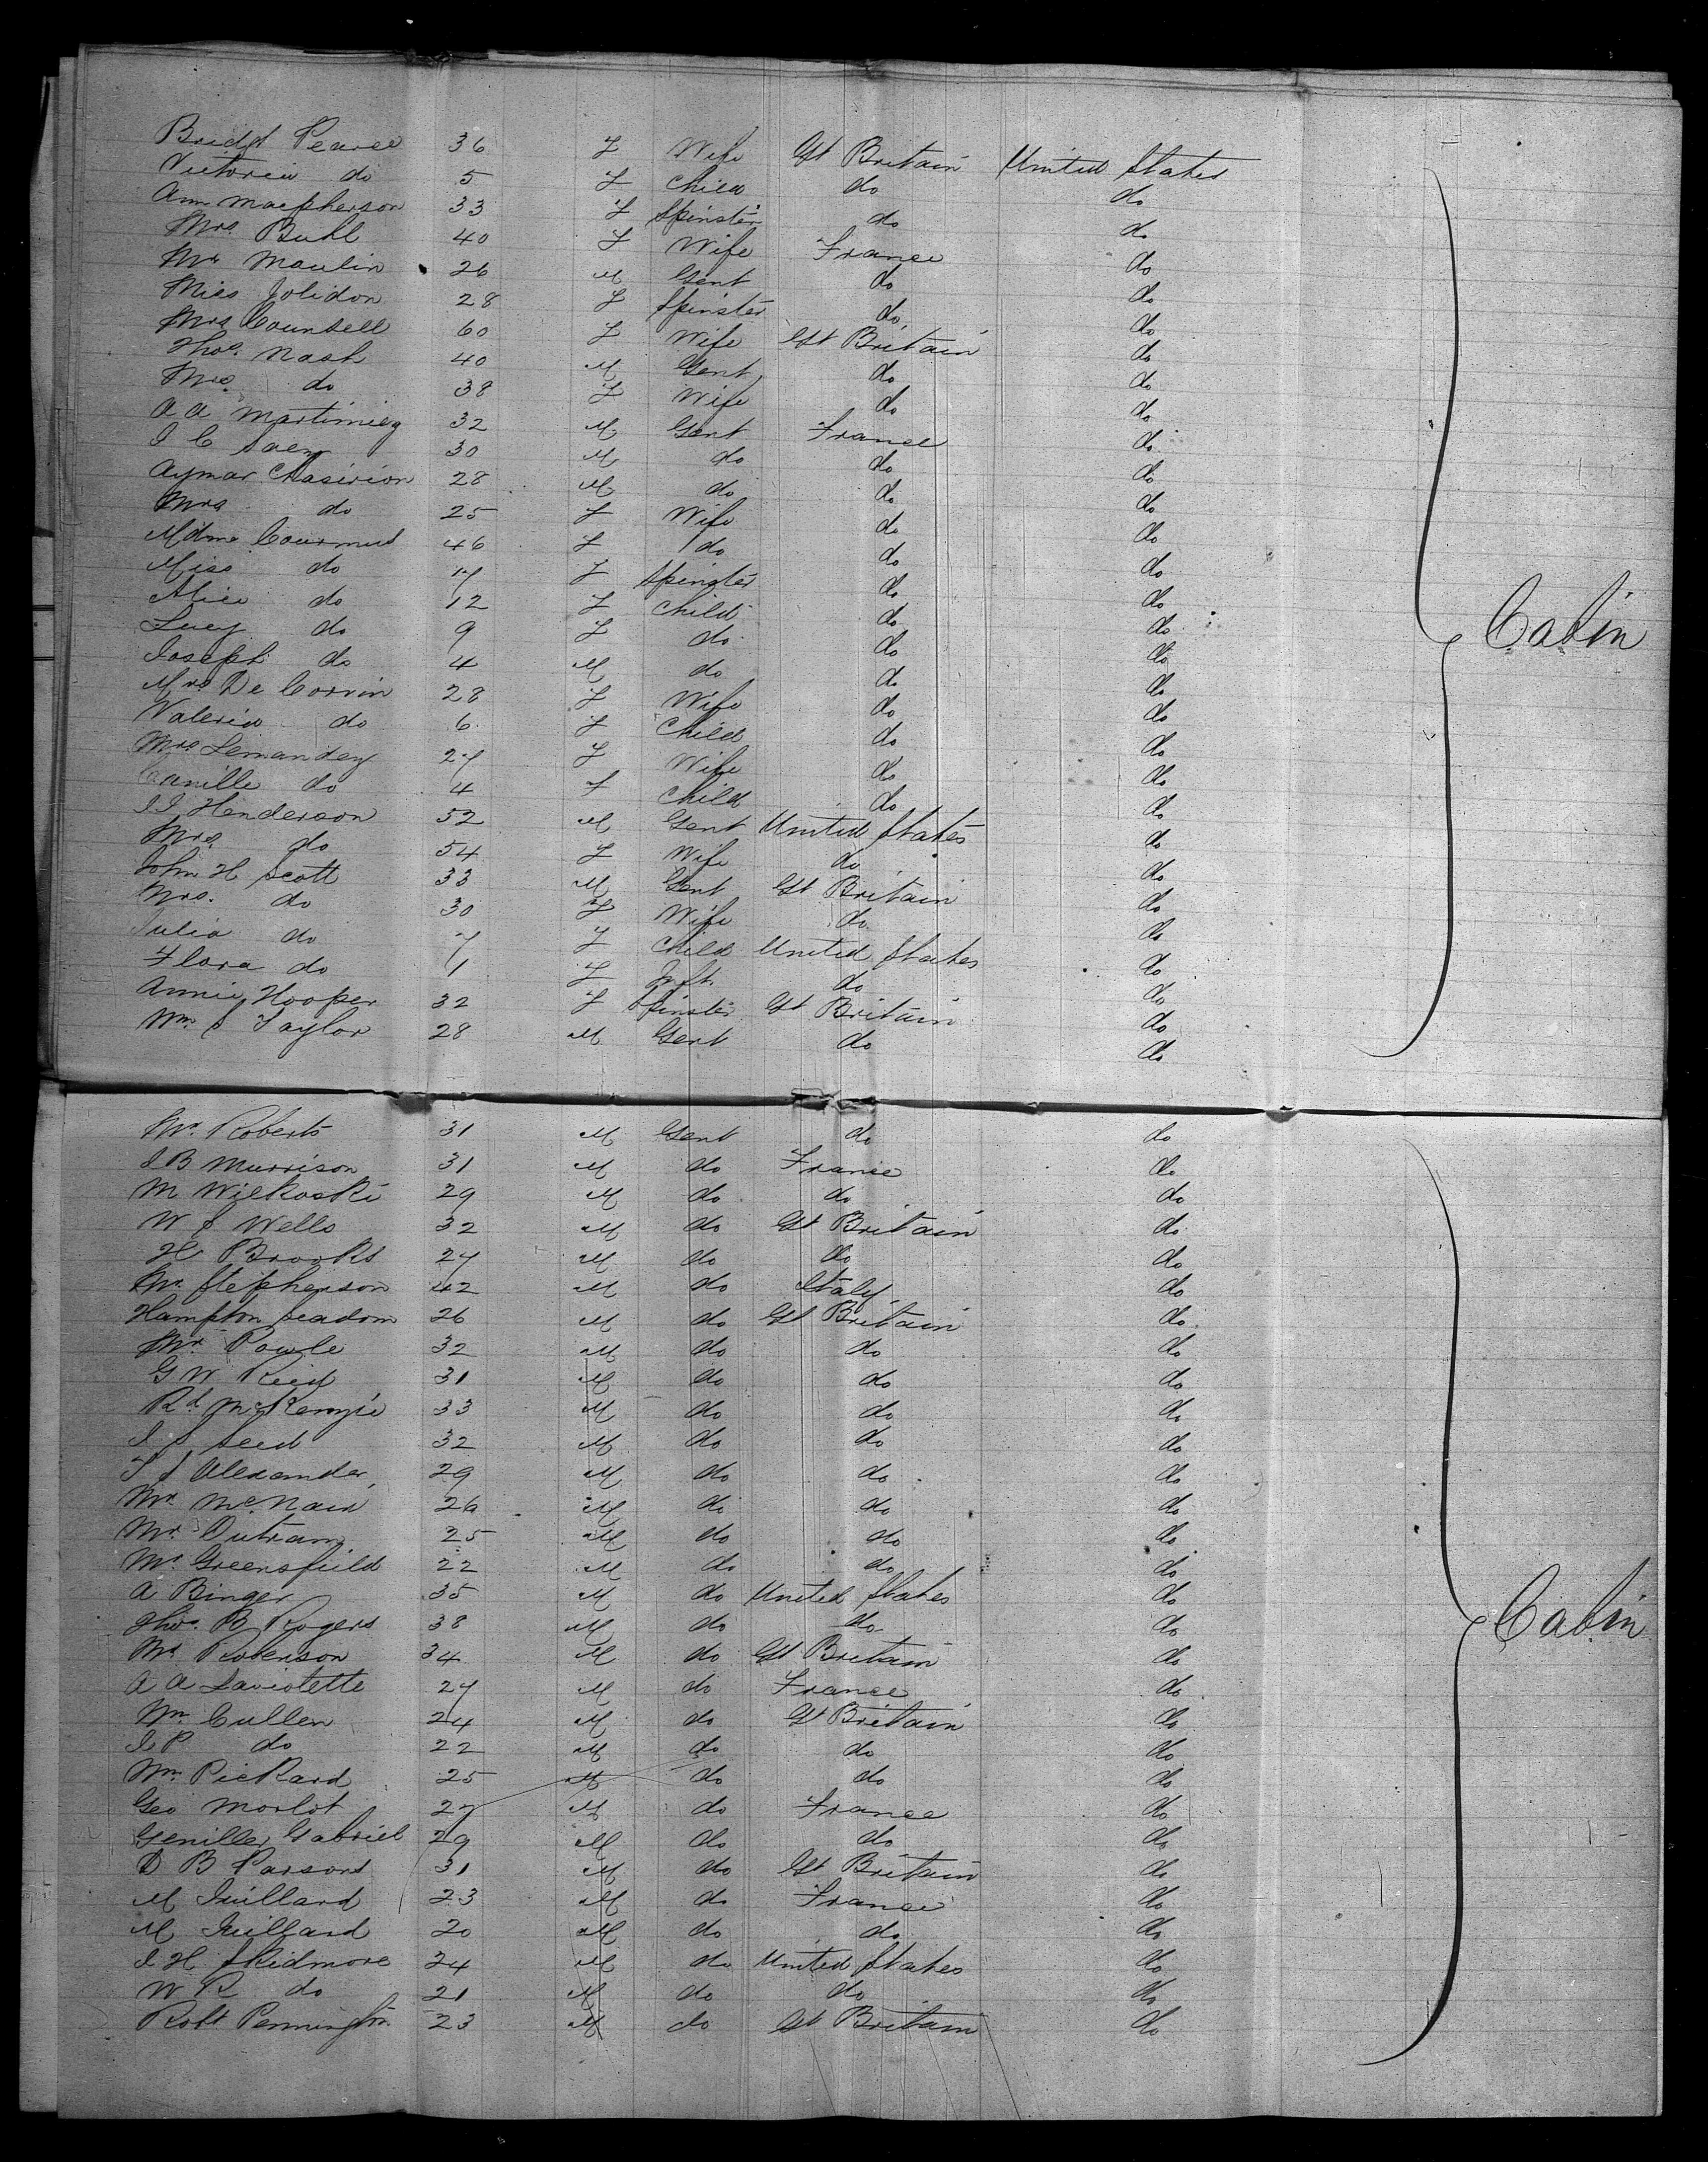 Bridgt Pearse 36 F Wife Gt Britain United States
Victoria do 5 F Child do do
Ann Macpherson 33 F Spinster do do
Mrs Buhl 40 F Wife France do
Mr Moulin 26 M Gent do do
Miss Jolidon 28 F Spinster do do
Mrs Counsell 60 F Wife Gt Britain do
Thos. Nash 40 M Gent do do
Mrs. do 38 F Wife do do
A A Martiniez 32 M Gent France do
I C Saez 30 M do do do
Aymar Chasirion 28 M do do do
Mrs do 25 F Wife do do
Mdme Cournud 46 F do do do
Miss do 17 F Spinster do do
Alice do 12 F Child do do
Lucy do 9 F do do do
Joseph do 4 M do do do
Mrs De Corvin 28 F Wife do do
Valeria do 6 F Child do do
Mrs Lemandey 27 F Wife do do
Camille do 4 F Child do do
J J Henderson 52 M Gent United States do
Mrs. do 54 F Wife do do
John H Scott 33 M Gent Gt Britain do
Mrs. do 30 F Wife do do
Julia do 7 F Child United States do
Flora do 1 F Inft do do
Annie Hooper 32 F Spinster Gt Britain do
Wm S Taylor 28 M Gent do do
Cabin
Mr. Roberts 31 M Gent do do
J B Murrison 31 M do France do
M Wilkoski 29 M do do do
W S Wells 32 M do Gt Britain do
H Brooks 27 M do do do
Mr. Stephenson 42 M do Italy do
Hampton Seadom 26 M do Gt Britain do
Mr Powle 32 M do do do
G W Reid 31 M do do do
Rd McKenzie 33 M do do do
J S Seed 32 M do do do
T S Alexander 29 M do do do
Mr. McNair 26 M do do do
Mr. Outram 25 M do do do
Mr Greensfield 22 M do do do
A Binger 35 M do United States do
Thos. B Rogers 38 M do do do
Mr Roberson 34 M do Gt Britain do
A A Laviolette 27 M do France do
Wm Cullen 24 M do Gt Britain do
J P do 22 M do do do
Wm Pickard 25 M do do do
Geo Morlot 27 M do France do
Geniller Gabriel 29 M do do do
D B Parsons 31 M do Gt Britain do
M Juillard 23 M do France do
M Juillard 20 M do do do
J H Skidmore 24 M do United States do
W R do 21 M do do do
Robt Pennington 23 M do Gt Britain do
Cabin